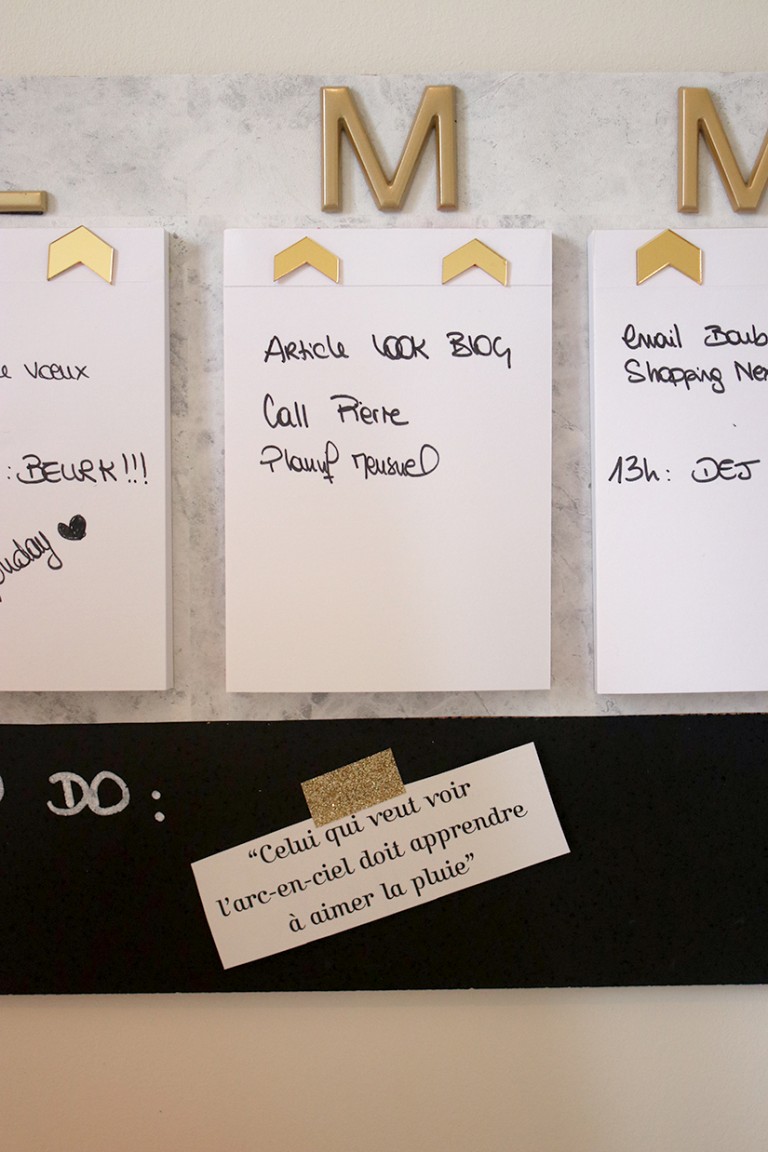 L
M
M
e vœux
: BEURK!!!
onday
Article LOOK BLOG
Call Pierre
Planif Mensuel
email Boub
Shopping New
13h: DEJ
DO :
“Celui qui veut voir
l'arc-en-ciel doit apprendre
à aimer la pluie”